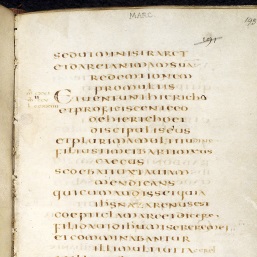 MARC
SEDUTMINISTRARET
ETDARETANIMAMSUA
REDEMTIONEM
PROMULTIS
ETUENIUNTHIERICHO
ETPROFICISCENTEEO
DEHIERICHOET
DISCIPULISEIUS
ETPLURIMAMULTITU
FILIUSTIMEIBARTIMEUS
CAECUS
SEDEBATIUXTAUIAM
MENDICANS
QUICUMAUDISSETQUIA
IHSNAZARENUSEST
COEPITCLAMAREETDICERE
FILIDAUIDIHUMISEREREMEI
ETCOMMINABANTUR
ILLIMULTI